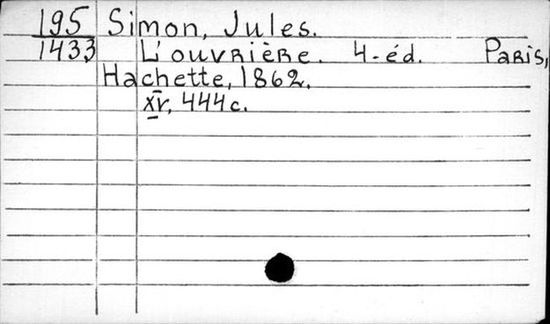 195 Simon, Jules.
1433 L'ouvrière. 4-éd. Paris,
Hachette, 1862.
XV, 444 c.